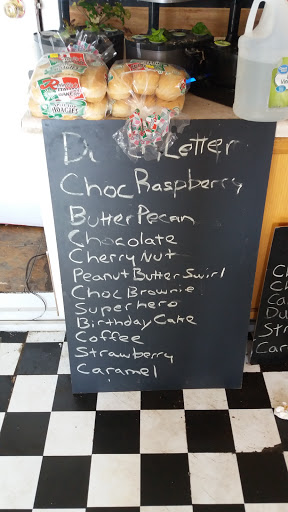 HOAGIES
Letter
Choc Raspberry
Butter Pecan
Chocolate
Cherry Nut
Peanut Butter Swirl
Choc Brownie
Superhero
Birthday Cake
Coffee
Strawberry
Caramel